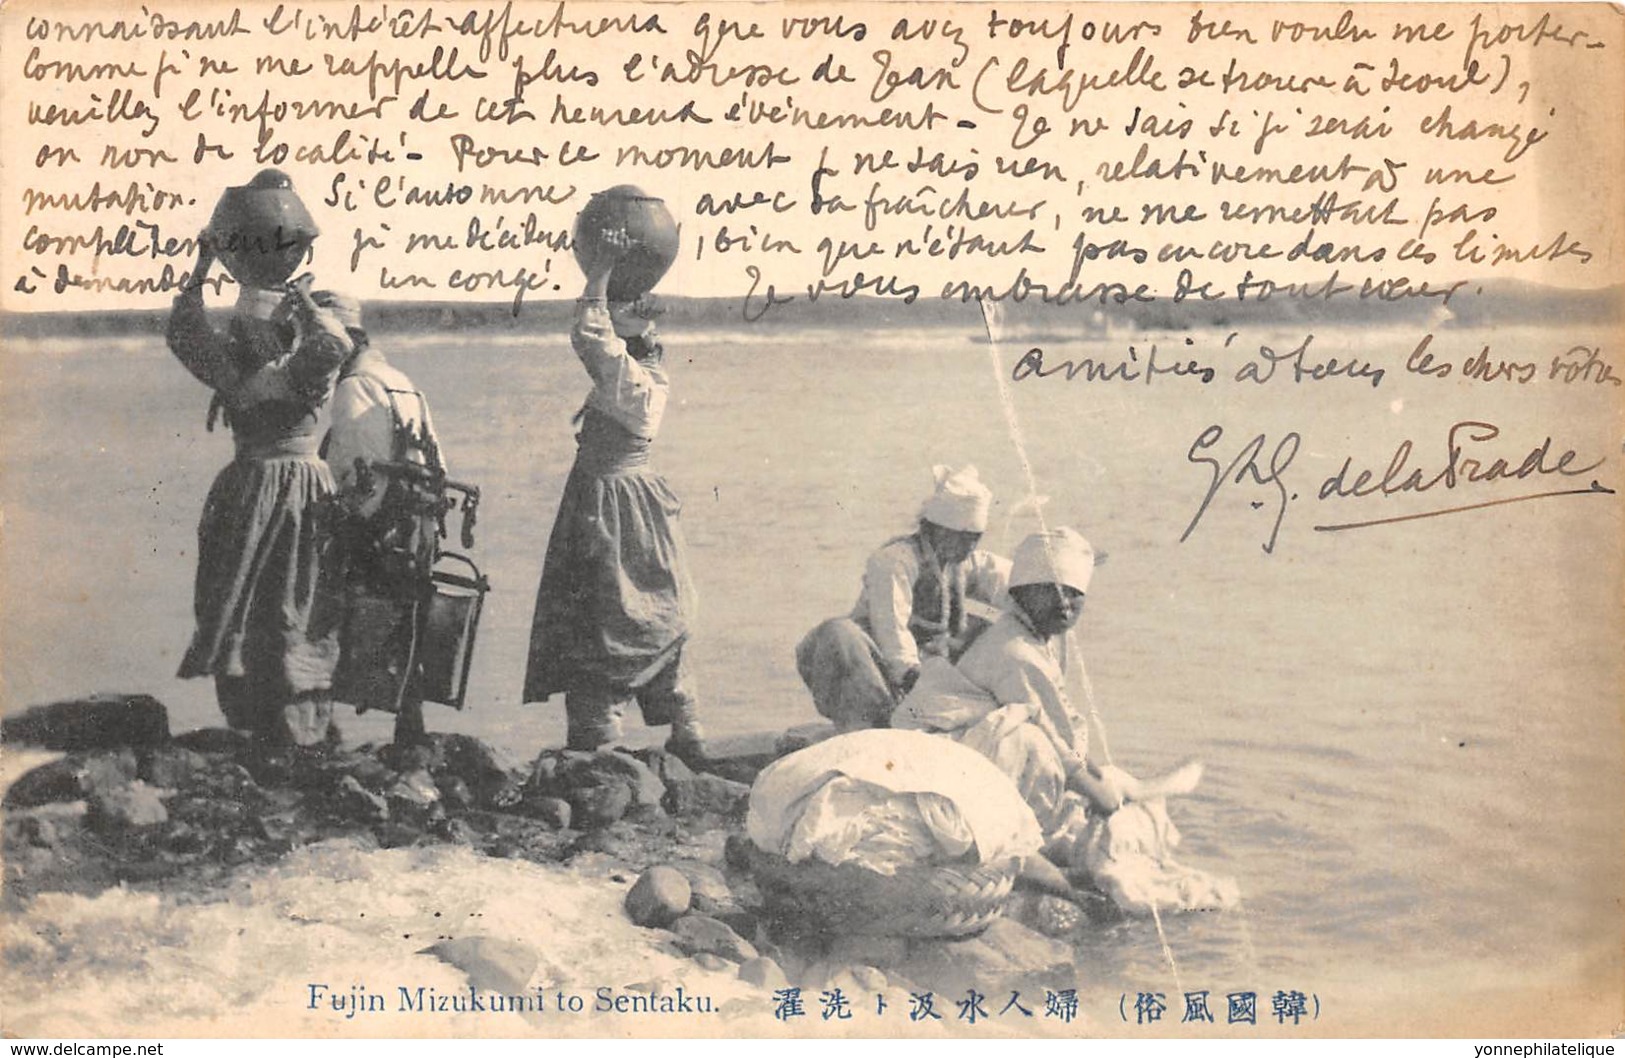 connaissant l'intérêt affectueux que vous avez toujours bien voulu me porter -
Comme je ne me rappelle plus l'adresse de Jean (laquelle se trouve à Séoul),
veuillez l'informer de cet heureux évènement - Je ne sais si je serai changé
ou non de localité - Pour ce moment je ne sais rien, relativement à une
mutation. Si l'automne avec sa fraîcheur, ne me remettait pas
complètement, je me déciderai, bien que n'étant pas encore dans ces limites
à demander un congé. Je vous embrasse de tout cœur.
amitiés à tous les chers vôtres
de la Prade.
Fujin Mizukumi to Sentaku. 濯洗ト汲水人婦 (俗風國韓)
yonnephilatelie.delcampe.net yonnephilatelique